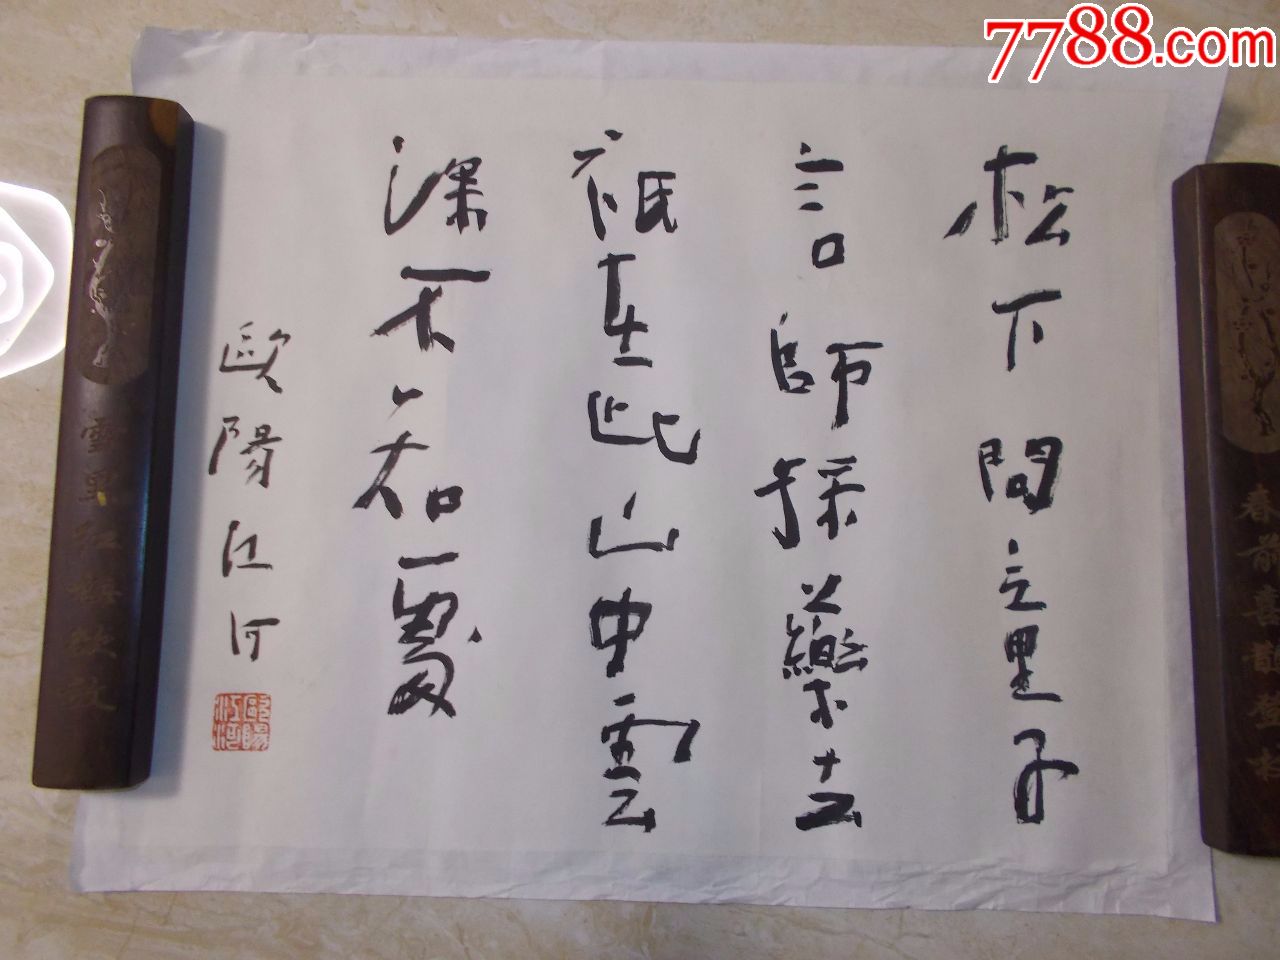 松下問童子
言師採藥去
祇在此山中雲
深不知處
歐陽江河
歐陽江河
雪里红梅
春前喜
登枝
7788.com